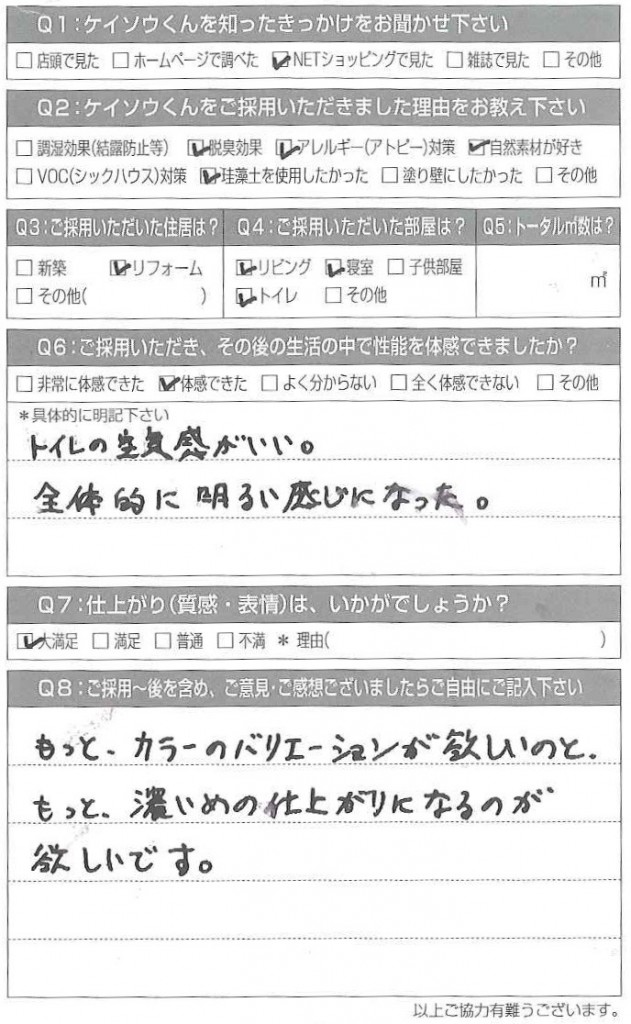 Q1:ケイソウくんを知ったきっかけをお聞かせ下さい
□店頭で見た □ホームページで調べた ☑NETショッピングで見た □雑誌で見た □その他
Q2:ケイソウくんをご採用いただきました理由をお教え下さい
□調湿効果(結露防止等) ☑脱臭効果 ☑アレルギー(アトピー)対策 ☑自然素材が好き
□VOC(シックハウス)対策 ☑珪藻土を使用したかった □塗り壁にしたかった □その他
Q3:ご採用いただいた住居は? Q4:ご採用いただいた部屋は? Q5:トータル㎡数は?
□新築 ☑リフォーム ☑リビング ☑寝室 □子供部屋 ㎡
□その他( ) ☑トイレ □その他
Q6:ご採用いただき、その後の生活の中で性能を体感できましたか?
□非常に体感できた ☑体感できた □よく分からない □全く体感できない □その他
*具体的に明記下さい
トイレの空気感がいい。
全体的に明るい感じになった。
Q7:仕上がり(質感・表情)は、いかがでしょうか?
☑大満足 □満足 □普通 □不満 *理由( )
Q8:ご採用〜後を含め、ご意見・ご感想ございましたらご自由にご記入下さい
もっと、カラーのバリエーションが欲しいのと、
もっと、濃いめの仕上がりになるのが
欲しいです。
以上ご協力有難うございます。